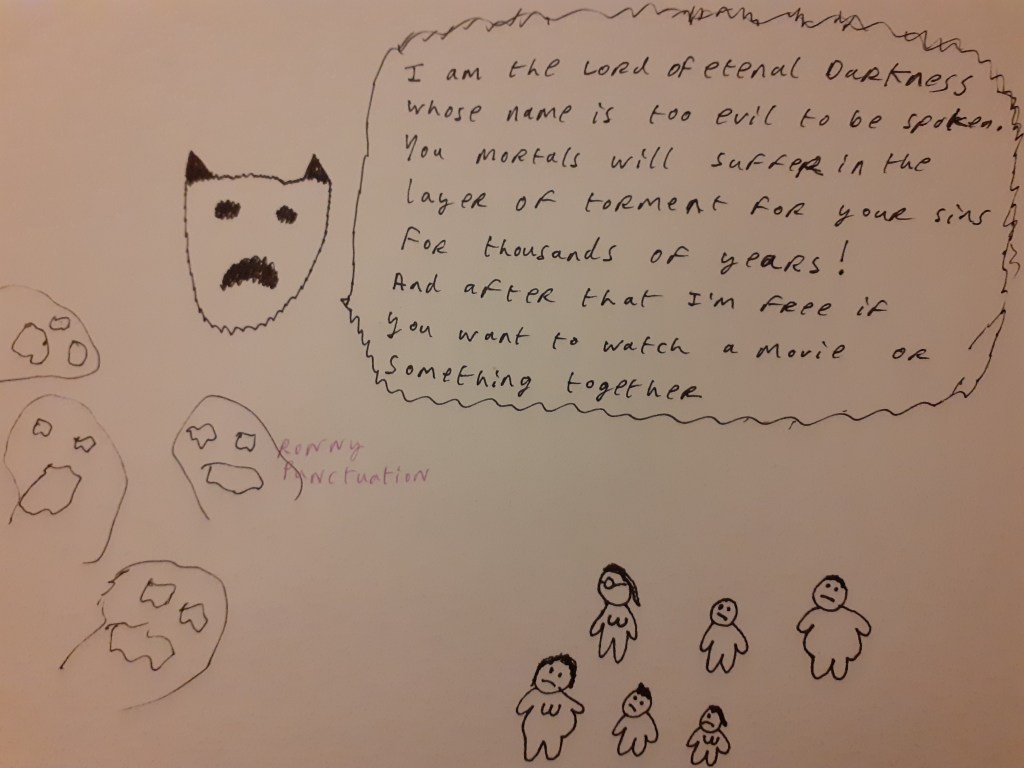 I am the Lord of etenal Darkness
whose name is too evil to be spoken.
You mortals will suffer in the
layer of torment for your sins
for thousands of years!
And after that I'm free if
you want to watch a movie or
something together
Ronny
Punctuation